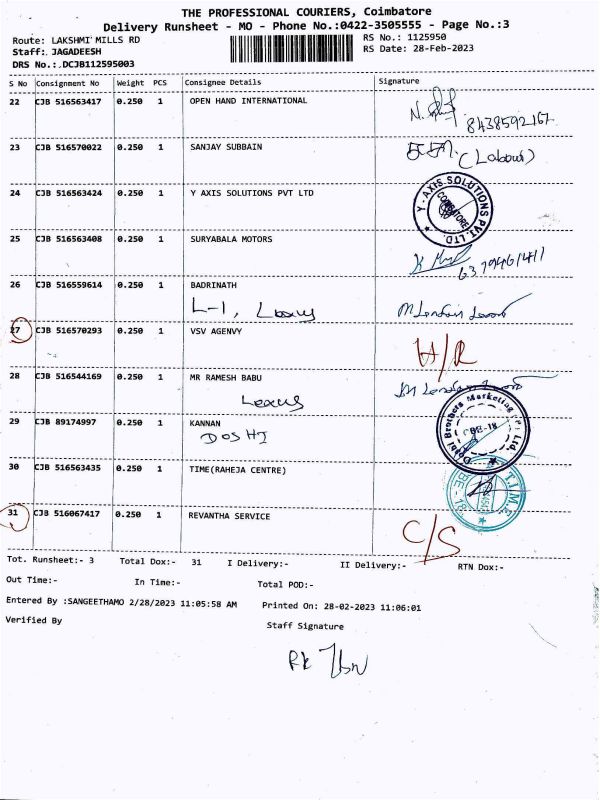 THE PROFESSIONAL COURIERS, Coimbatore
Delivery Runsheet - MO - Phone No.:0422-3505555 - Page No.:3
Route: LAKSHMI MILLS RD
RS No.: 1125950
Staff: JAGADEESH
RS Date: 28-Feb-2023
DRS No.:.DCJB112595003
S No Consignment No Weight PCS Consignee Details Signature
22 CJB 516563417 0.250 1 OPEN HAND INTERNATIONAL
8438592167
23 CJB 516570022 0.250 1 SANJAY SUBBAIN
(Labour)
24 CJB 516563424 0.250 1 Y AXIS SOLUTIONS PVT LTD
Y-AXIS SOLUTIONS PVT. LTD. COIMBATORE
25 CJB 516563408 0.250 1 SURYABALA MOTORS
26 CJB 516559614 0.250 1 BADRINATH
L-1, Lexus
27 CJB 516570293 0.250 1 VSV AGENVY
H/R
28 CJB 516544169 0.250 1 MR RAMESH BABU
Lexus
29 CJB 89174997 0.250 1 KANNAN
DOSHI
Brothers Marketing Ltd.
30 CJB 516563435 0.250 1 TIME(RAHEJA CENTRE)
T.I.M.E
31 CJB 516067417 0.250 1 REVANTHA SERVICE
C/S
Tot. Runsheet:- 3 Total Dox:- 31 I Delivery:- II Delivery:- RTN Dox:-
Out Time:- In Time:- Total POD:-
Entered By :SANGEETHAMO 2/28/2023 11:05:58 AM Printed On: 28-02-2023 11:06:01
Verified By
Staff Signature